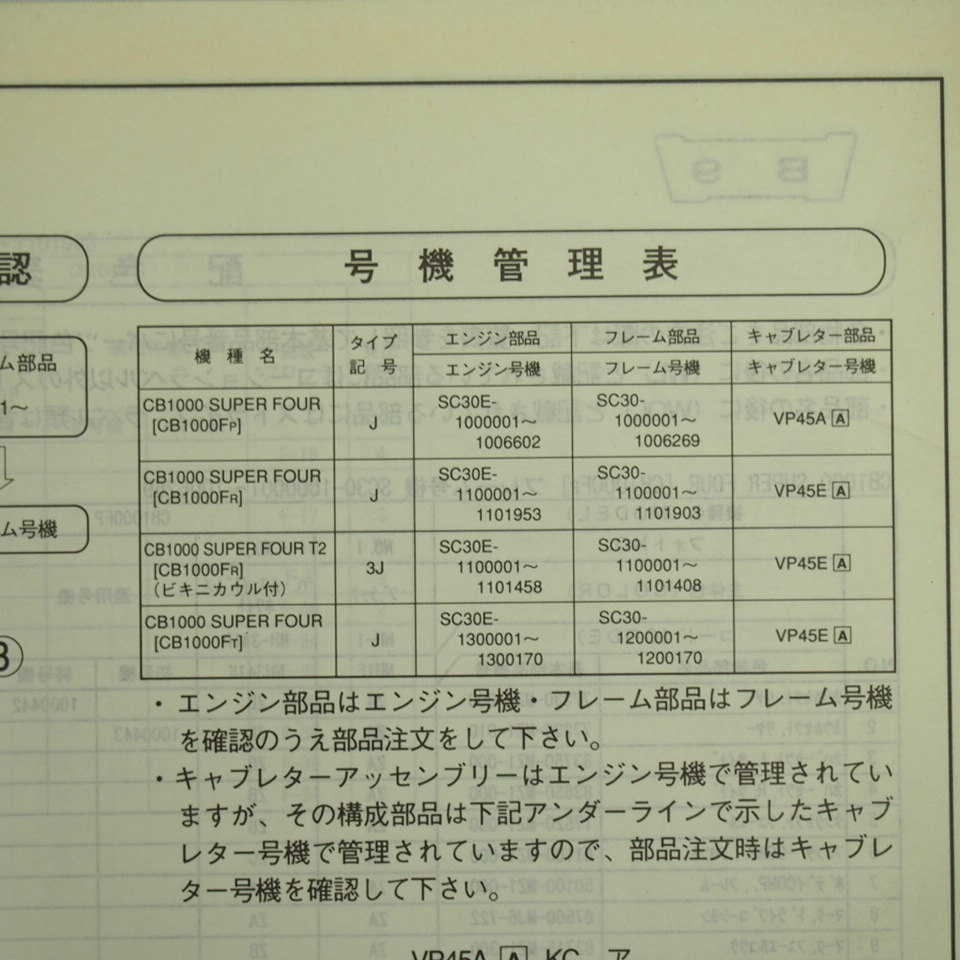 認
号機管理表
ム部品
1～
ム号機
3
機種名 タイプ記号 エンジン部品 フレーム部品 キャブレター部品
エンジン号機 フレーム号機 キャブレター号機
CB1000 SUPER FOUR [CB1000FP] J SC30E-1000001～1006602 SC30-1000001～1006269 VP45A A
CB1000 SUPER FOUR [CB1000FR] J SC30E-1100001～1101953 SC30-1100001～1101903 VP45E A
CB1000 SUPER FOUR T2 [CB1000FR] (ビキニカウル付) 3J SC30E-1100001～1101458 SC30-1100001～1101408 VP45E A
CB1000 SUPER FOUR [CB1000FT] J SC30E-1300001～1300170 SC30-1200001～1200170 VP45E A
・エンジン部品はエンジン号機・フレーム部品はフレーム号機
を確認のうえ部品注文をして下さい。
・キャブレターアッセンブリーはエンジン号機で管理されてい
ますが、その構成部品は下記アンダーラインで示したキャブ
レター号機で管理されていますので、部品注文時はキャブレ
ター号機を確認して下さい。
VP45A A KC ア